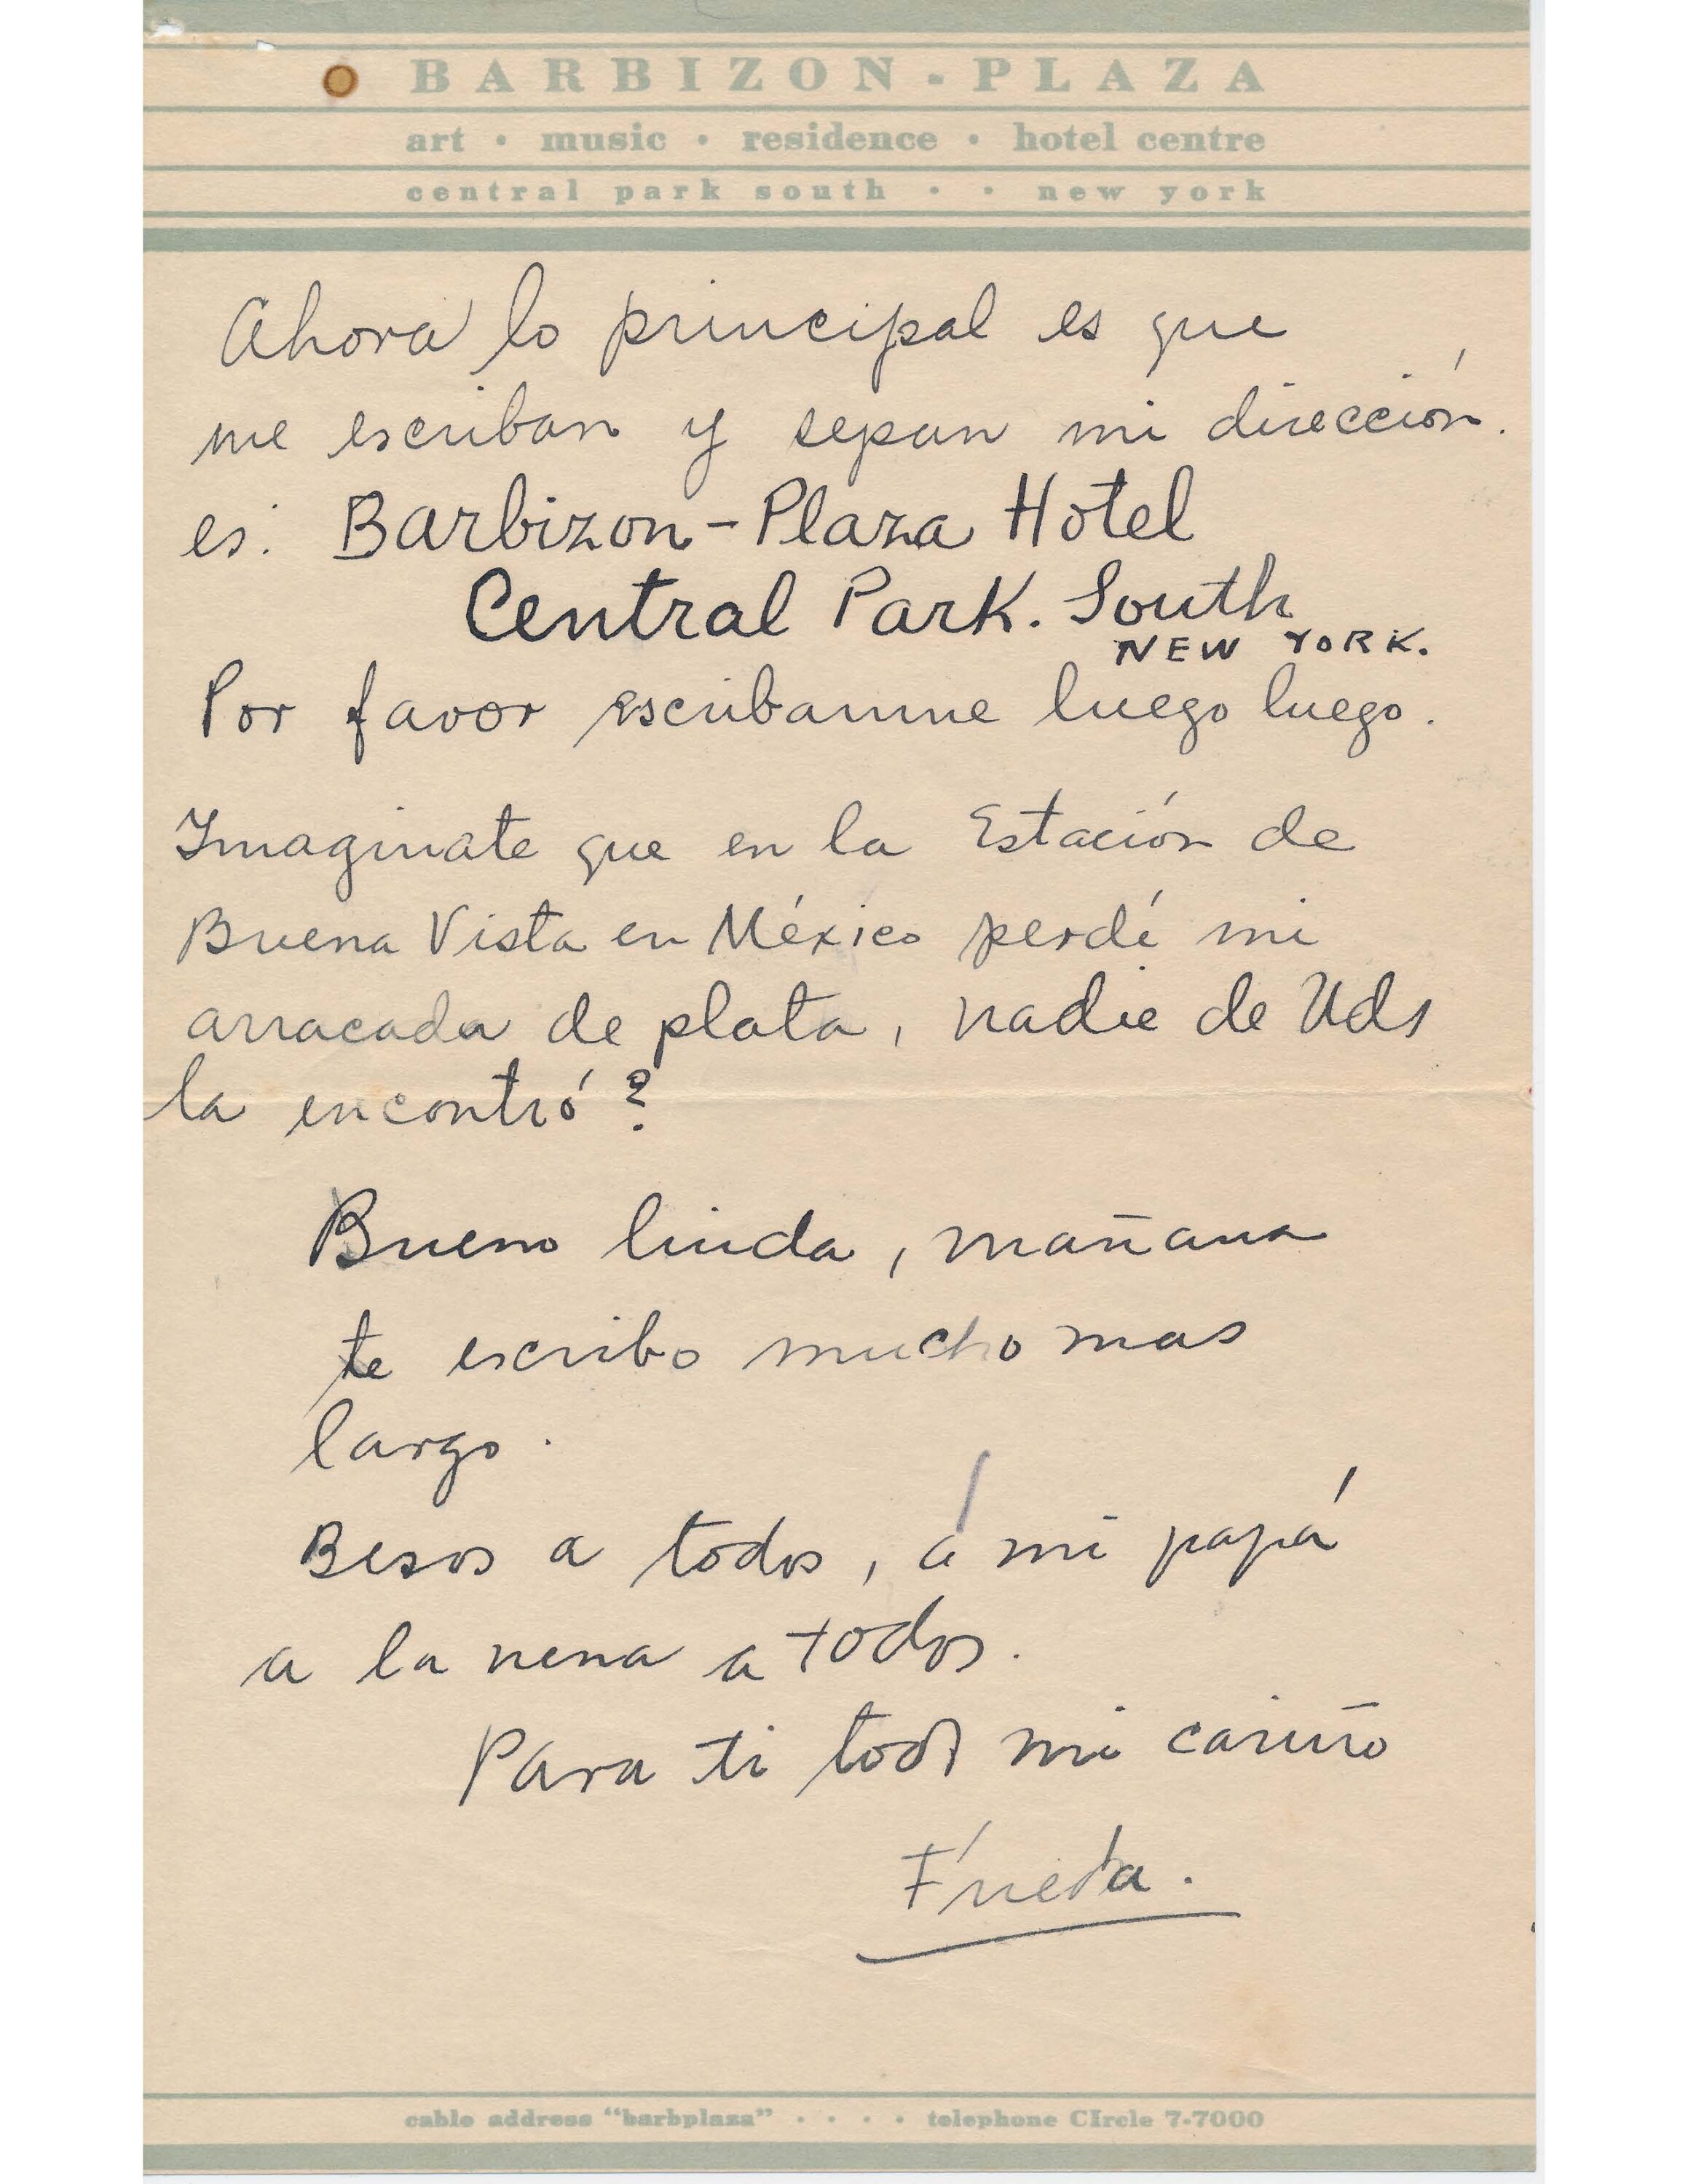 BARBIZON-PLAZA
art • music • residence • hotel centre
central park south • • new york
Ahora lo principal es que
me escriban y sepan mi dirección.
es: Barbizon-Plaza Hotel
Central Park. South
NEW YORK.
Por favor escribanme luego luego.
Imaginate que en la Estación de
Buena Vista en México perdí mi
arracada de plata, nadie de Uds
la encontró?
Bueno linda, mañana
te escribo mucho mas
largo.
Besos a todos, á mi papá
a la nena a todos.
Para ti todo mi cariño
Frieda.
cable address "barbplaza" • • • • telephone CIrcle 7-7000